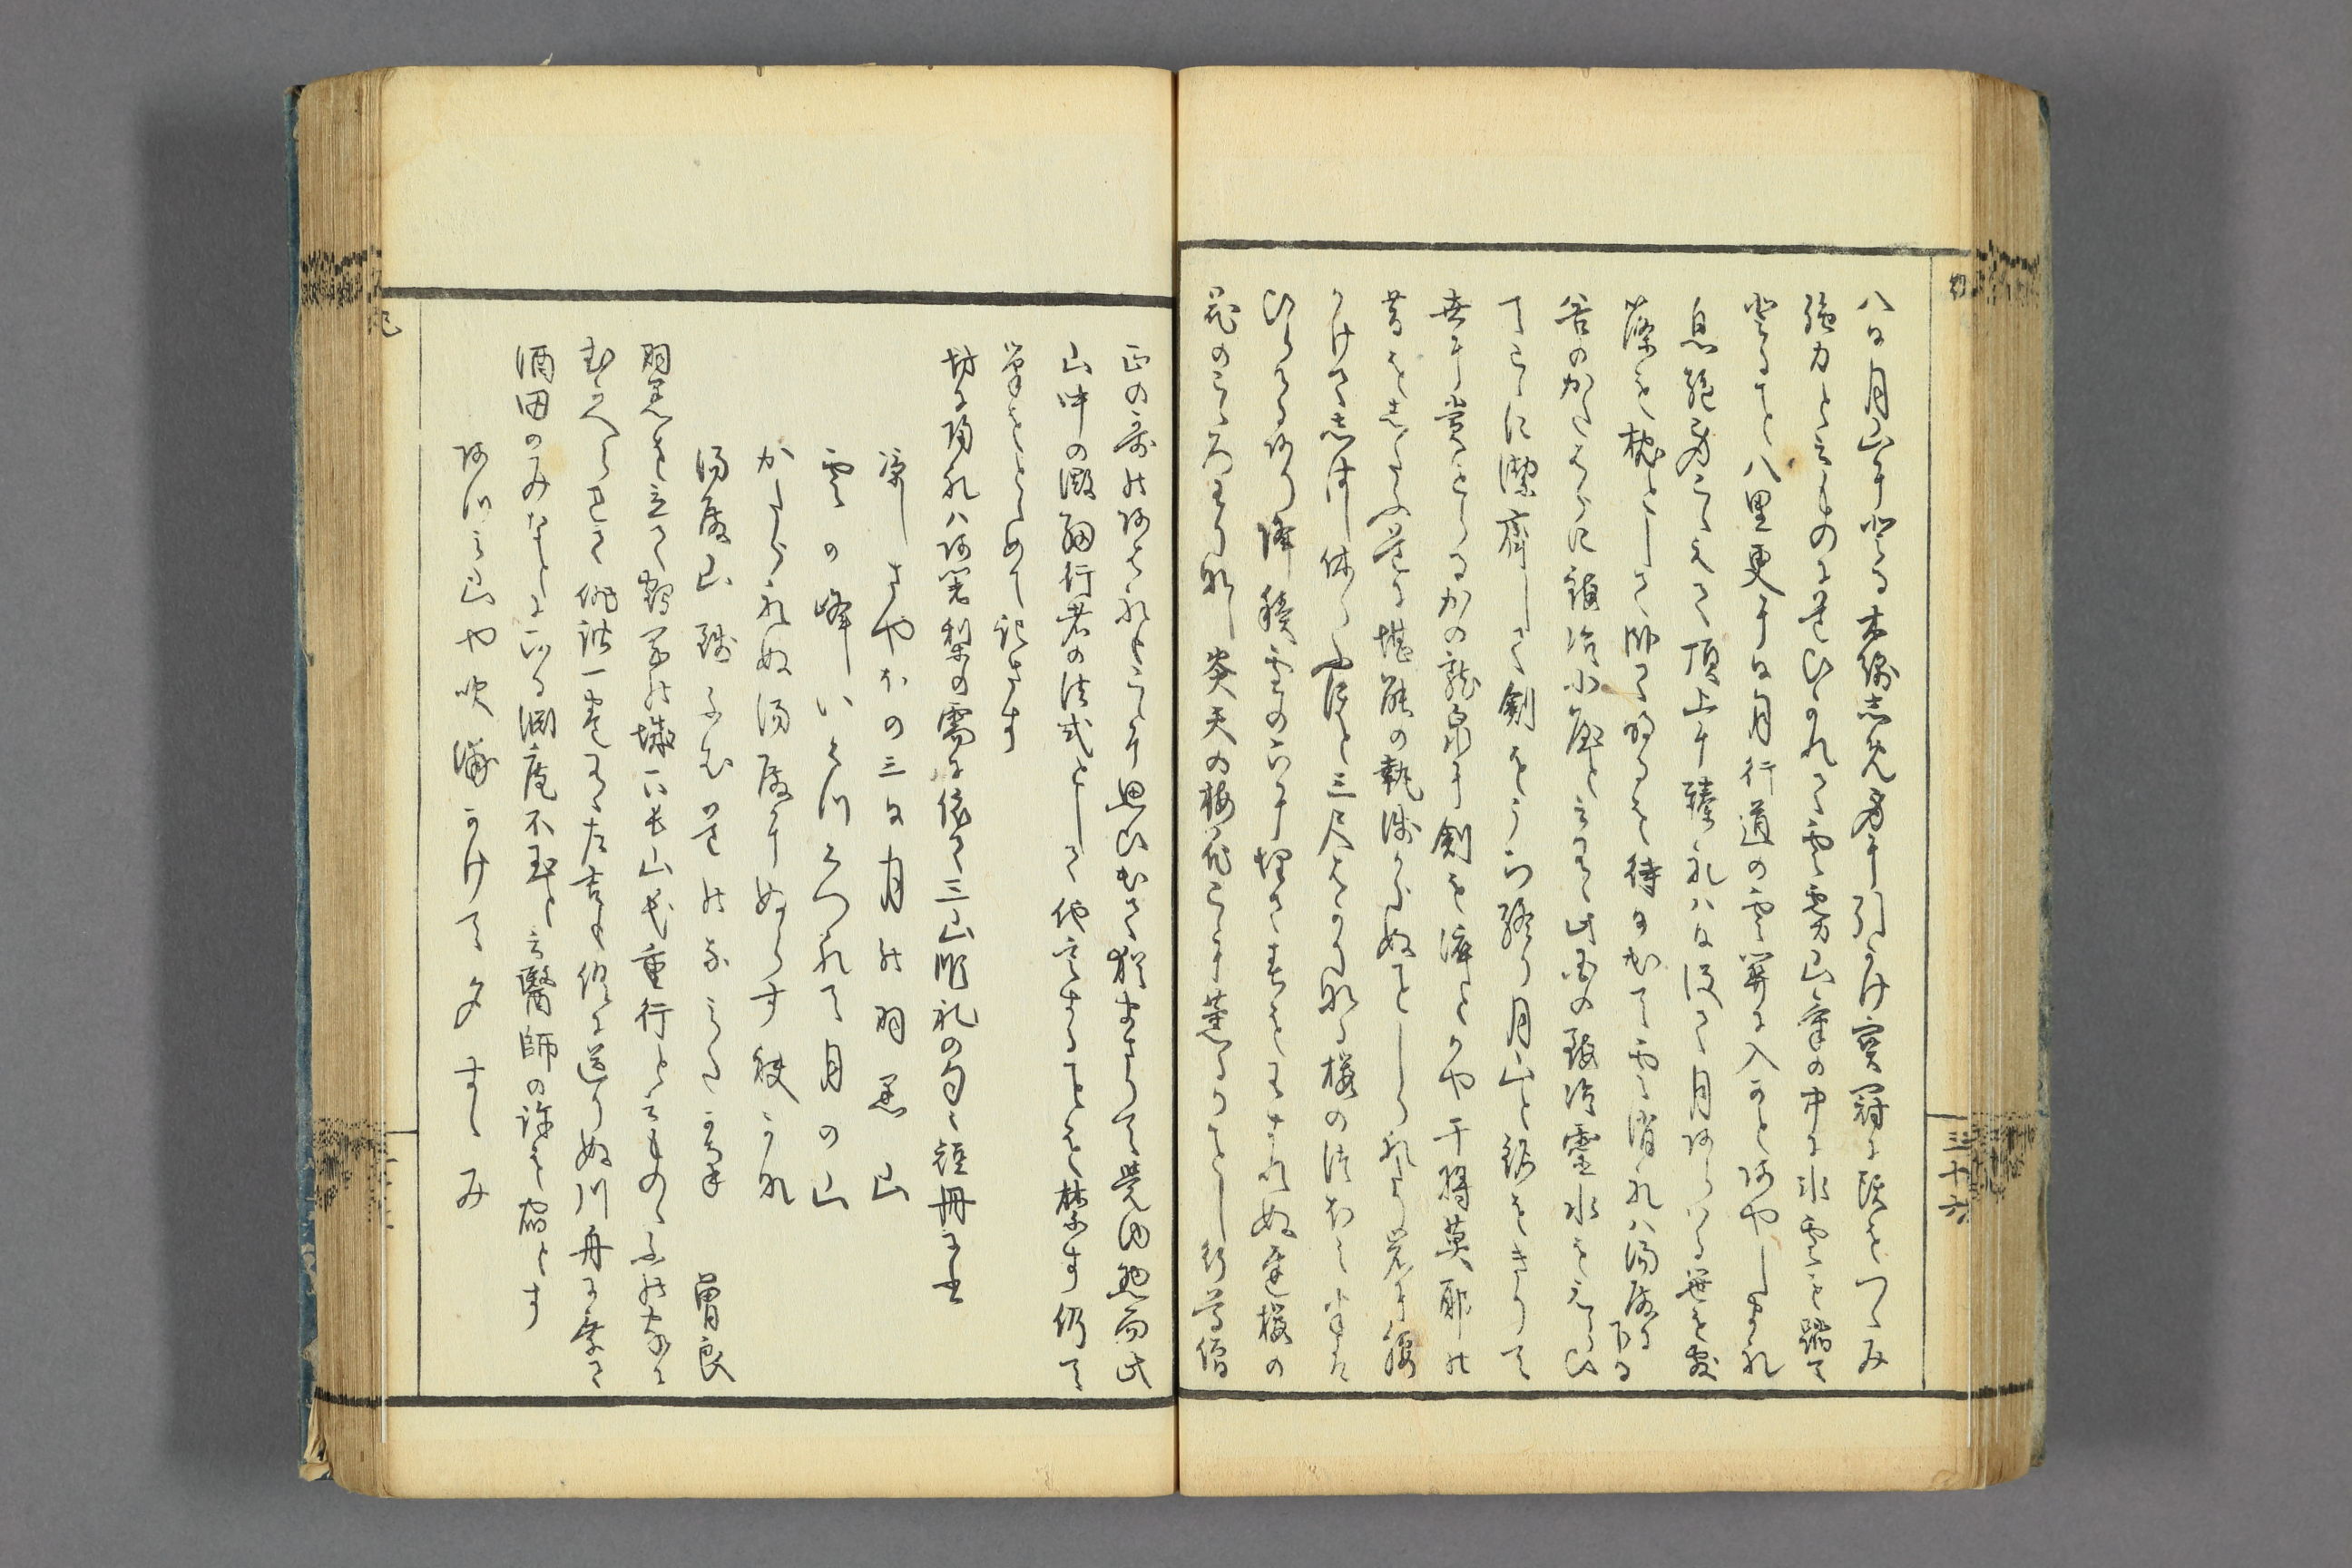 八日月山にのほる木綿志め身に引かけ寳冠に頭をつゝみ
強力と云ものに道ひかれて雲霧山氣の中に氷雪を踏て
登ること八里更に日月行道の雲關に入かとあやしまれ
息絶身こゝえて頂上に臻れハ日没て月あらハる笹を敷
篠を枕として臥て明るを待日出て雲消れハ湯殿に下る
谷のかたはらに鍛冶小屋と云有此國の鍛冶靈水をえらひ
てこゝに潔齋して剣をうち終り月山と銘をきりて
世に賞せらるかの龍泉に剣を淬とかや干将莫耶の
昔をしたふ道に堪能の執浅からぬことしられたり岩に腰
かけて志はし休らふほと三尺はかりなる櫻のつほミ半は
ひらけるあり降積雪の下に埋て春をわすれぬ遅櫻の
花のこゝろわりなし炎天の梅花こゝに薫るかことし行尊僧
三十六
正の哥のあはれもこゝに思ひ出て猶まさりて覚ゆ惣而此
山中の微細行者の法式として他言する事を禁す仍て
筆をとゝめて記さす
坊に帰れハ阿闍梨の需に依て三山順礼の句〻短冊に書
涼しさやほの三日月の羽黒山
雲の峰いくつくつれて月の山
かたられぬ湯殿にぬらす袂かな
湯殿山銭ふむ道のなみたかな 曽良
羽黒を立て鶴岡の城下長山氏重行と云ものゝふの家に
むかへられて俳諧一巻有左吉も倶に送りぬ川舟に乗て
酒田のみなとに下る淵庵不玉と云醫師の許を宿とす
あつミ山や吹浦かけて夕すゝみ